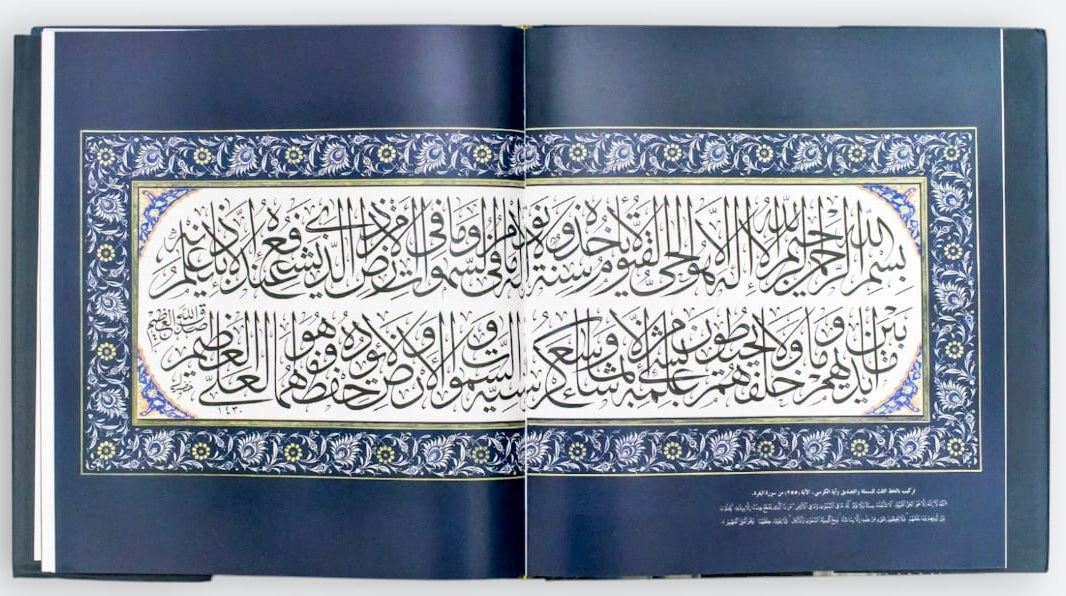 بسم الله الرحمن الرحيم الله لا إله إلا هو الحي القيوم لا تأخذه سنة ولا نوم له ما في السموات وما في الأرض من ذا الذي يشفع عنده إلا بإذنه يعلم
ما بين أيديهم وما خلفهم ولا يحيطون بشيء من علمه إلا بما شاء وسع كرسيه السموات والأرض ولا يؤده حفظهما وهو العلي العظيم
صدق الله العظيم
١٤٣٠
تركيب بالخط الثلث للبسملة والتصديق وآية الكرسي، الآية (٢٥٥) من سورة البقرة.